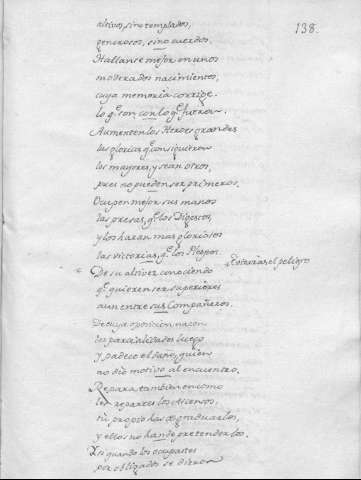 138.
altivos, sino templados,
generosos, sino cuerdos.
Hallanse mejor en unos
moderados nacimientos,
cuya memoria corrige
lo q.e son, con lo q.e fueron.
Aumenten los Heroes grandes
las glorias q.e consiguieron
los mayores, y sean otros,
pues no pueden ser primeros.
Ocupen mejor sus manos
las presas, q.e los Digestos,
y los haran mas gloriosos
las victorias, q.e los
De su altivez conociendo
q.e quieren ser superiores
aun entre sus Compañeros.
De cuya oposicion nacen
las parcialidades luego
y padece el daño, quien
no dio motivo al encuentro.
Repara tambien en como
les repartes los Ascensos.
tu propio has de graduarlos,
y ellos no han de pretenderlos.
si quando los ocupastes
por obligados se dieron
el peligro